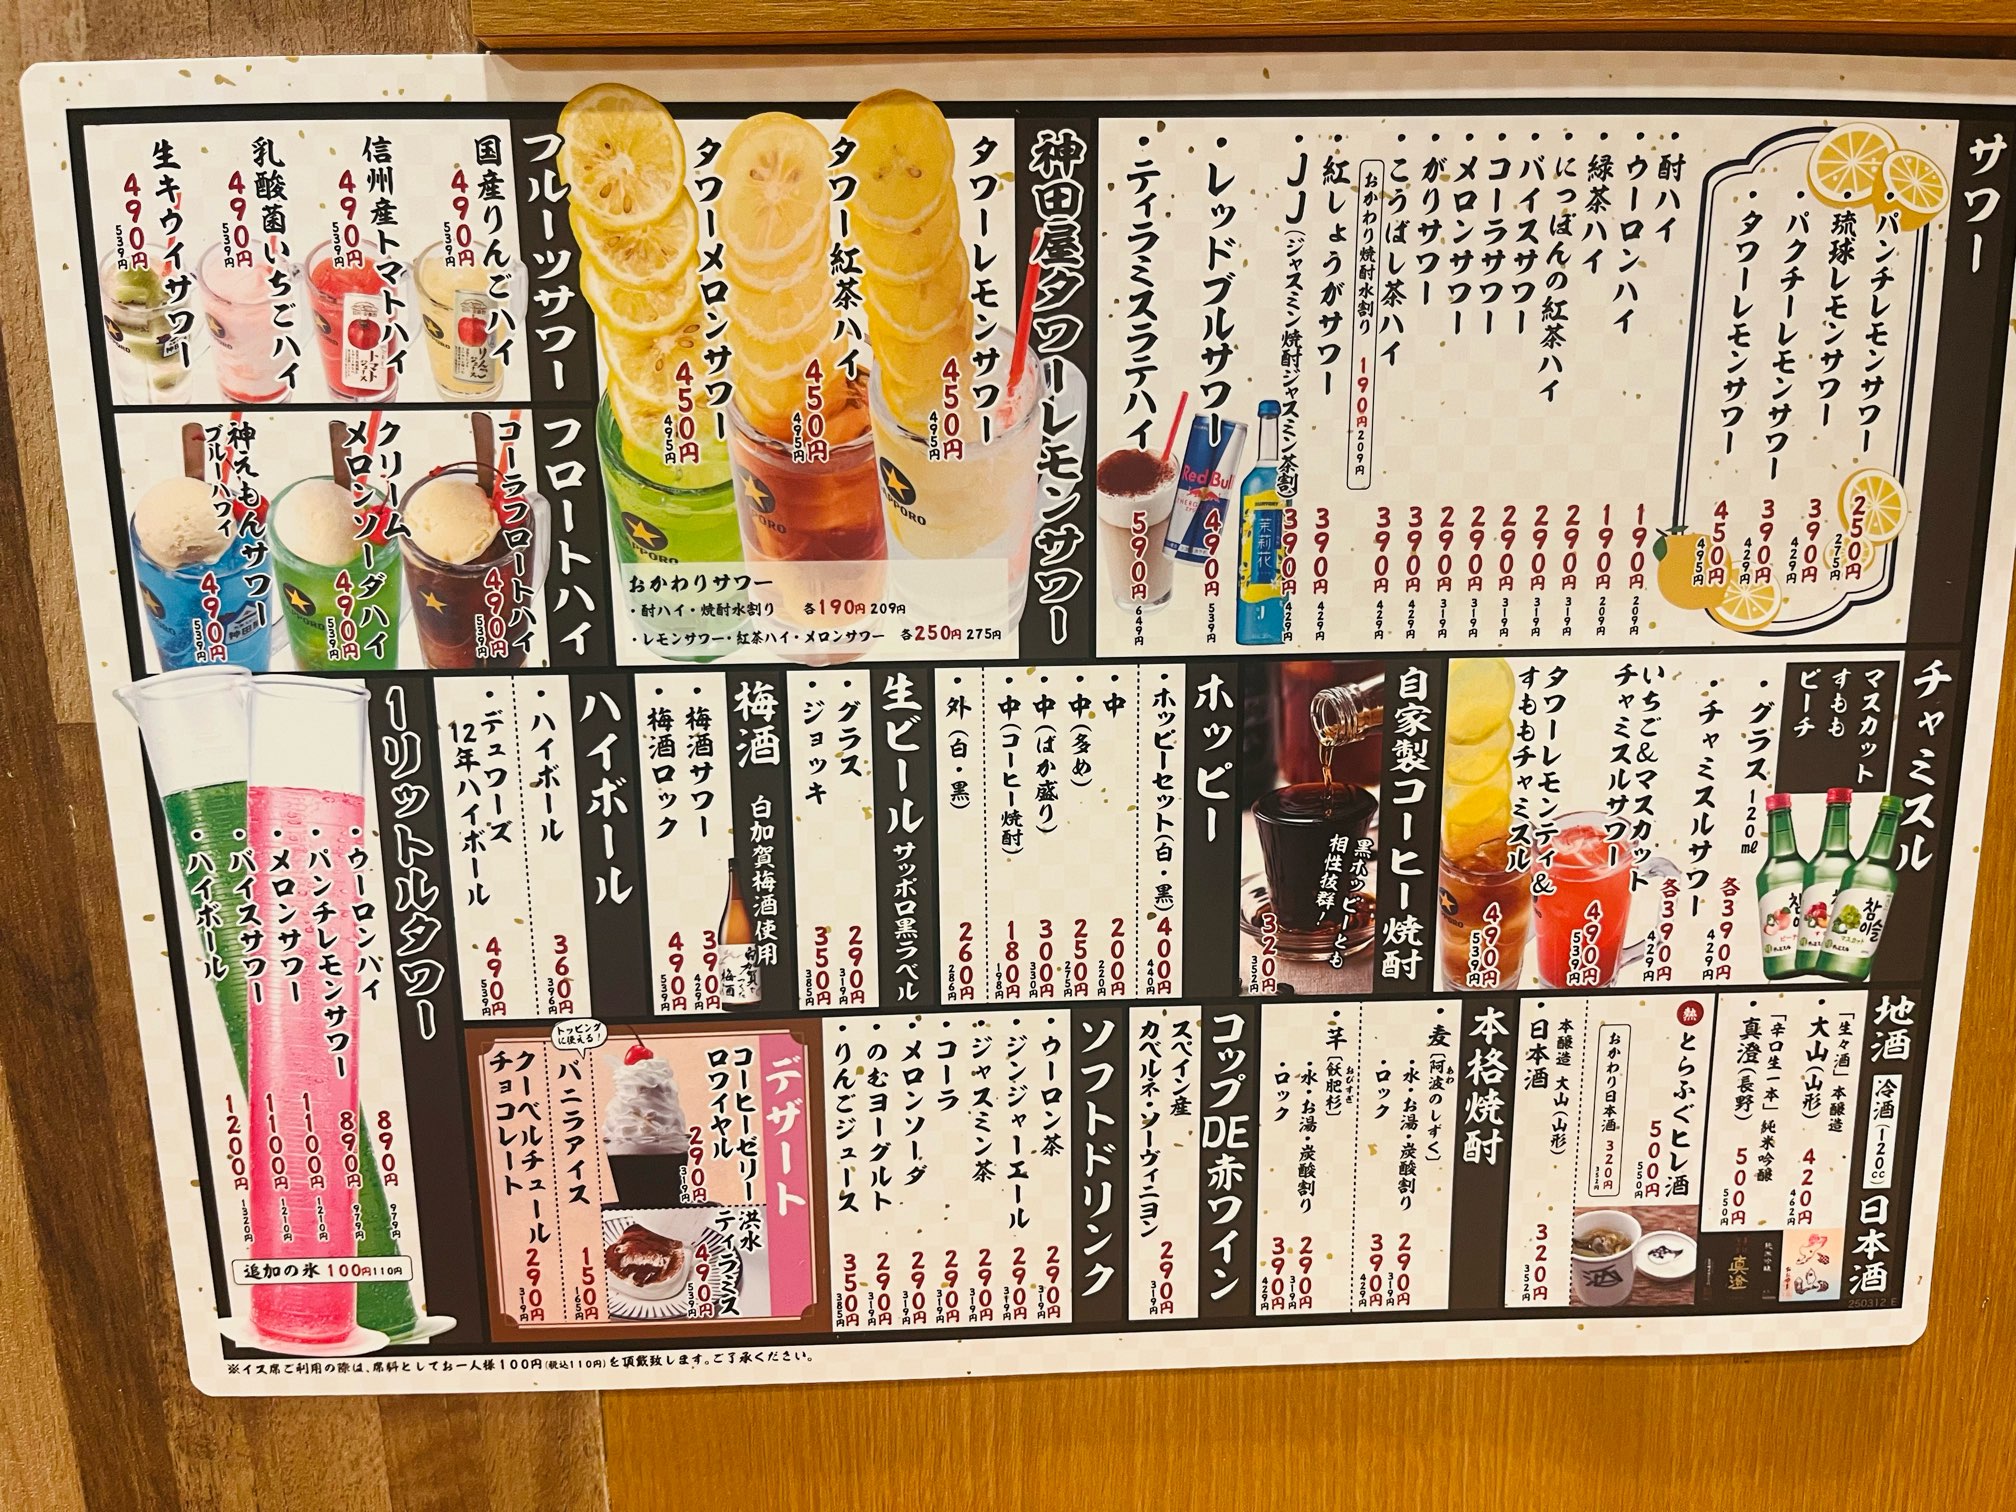 サワー
・パンチレモンサワー 250円 275円
・琉球レモンサワー 390円 429円
・パクチーレモンサワー 390円 429円
・タワーレモンサワー 450円 495円
・酎ハイ 190円 209円
・ウーロンハイ 190円 209円
・緑茶ハイ 290円 319円
・にっぽんの紅茶ハイ 290円 319円
・バイスサワー 290円 319円
・コーラサワー 290円 319円
・メロンサワー 290円 319円
・がりサワー 390円 429円
・こうばし茶ハイ 390円 429円
おかわり焼酎水割り 190円 209円
・紅しょうがサワー 390円 429円
・JJ(ジャスミン焼酎ジャスミン茶割) 390円 429円
・レッドブルサワー 490円 539円
・ティラミスラテハイ 590円 649円
Red Bull
茉莉花
神田屋タワーレモンサワー
タワーレモンサワー 450円 495円
タワー紅茶ハイ 450円 495円
タワーメロンサワー 450円 495円
おかわりサワー
・酎ハイ・焼酎水割り 各190円 209円
・レモンサワー・紅茶ハイ・メロンサワー 各250円 275円
フルーツサワー
国産りんごハイ 490円 539円
信州産トマトハイ 490円 539円
乳酸菌いちごハイ 490円 539円
生キウイサワー 490円 539円
フロートハイ
コーラフロートハイ 490円 539円
クリーム
メロンソーダハイ 490円 539円
神えもんサワー
ブルーハワイ 490円 539円
チャミスル
マスカット
すもも
ピーチ
・グラス120㎖ 各390円 429円
・チャミスルサワー 各390円 429円
いちご&マスカット
チャミスルサワー 490円 539円
タワーレモンティ&
すももチャミスル 490円 539円
自家製コーヒー焼酎
黒ホッピーとも
相性抜群!
320円 352円
ホッピー
・ホッピーセット(白・黒) 400円 440円
・中 200円 220円
・中(多め) 250円 275円
・中(ばか盛り) 300円 330円
・中(コーヒー焼酎) 180円 198円
・外(白・黒) 260円 286円
生ビール サッポロ黒ラベル
・グラス 290円 319円
・ジョッキ 350円 385円
梅酒 白加賀梅酒使用
・梅酒サワー 390円 429円
・梅酒ロック 490円 539円
ハイボール
・ハイボール 360円 396円
・デュワーズ
12年ハイボール 490円 539円
1リットルタワー
・ウーロンハイ 890円 979円
・パンチレモンサワー 890円 979円
・メロンサワー 1100円 1210円
・バイスサワー 1100円 1210円
・ハイボール 1200円 1320円
追加の氷 100円 110円
地酒 冷酒(120cc) 日本酒
「生々酒」本醸造
・大山(山形) 420円 462円
「辛口生一本」純米吟醸
・真澄(長野) 500円 550円
熱 とらふぐヒレ酒 500円 550円
おかわり日本酒 320円 352円
本醸造 大山(山形)
・日本酒 320円 352円
酒
真澄
250312.E
本格焼酎
・麦〔阿波のしずく〕
あわ
・水・お湯・炭酸割り 290円 319円
・ロック 390円 429円
・芋〔飫肥杉〕
おびすぎ
・水・お湯・炭酸割り 290円 319円
・ロック 390円 429円
コップDE赤ワイン
スペイン産
カベルネ・ソーヴィニヨン 290円 319円
ソフトドリンク
・ウーロン茶 290円 319円
・ジンジャーエール 290円 319円
・ジャスミン茶 290円 319円
・コーラ 290円 319円
・メロンソーダ 290円 319円
・のむヨーグルト 290円 319円
・りんごジュース 350円 385円
デザート
コーヒーゼリー
ロワイヤル 290円 319円
洪水
ティラミス 490円 539円
トッピングに使える!
バニラアイス 150円 165円
クーベルチュール
チョコレート 290円 319円
※イス席ご利用の際は、席料としてお一人様100円(税込110円)を頂戴致します。ご了承ください。